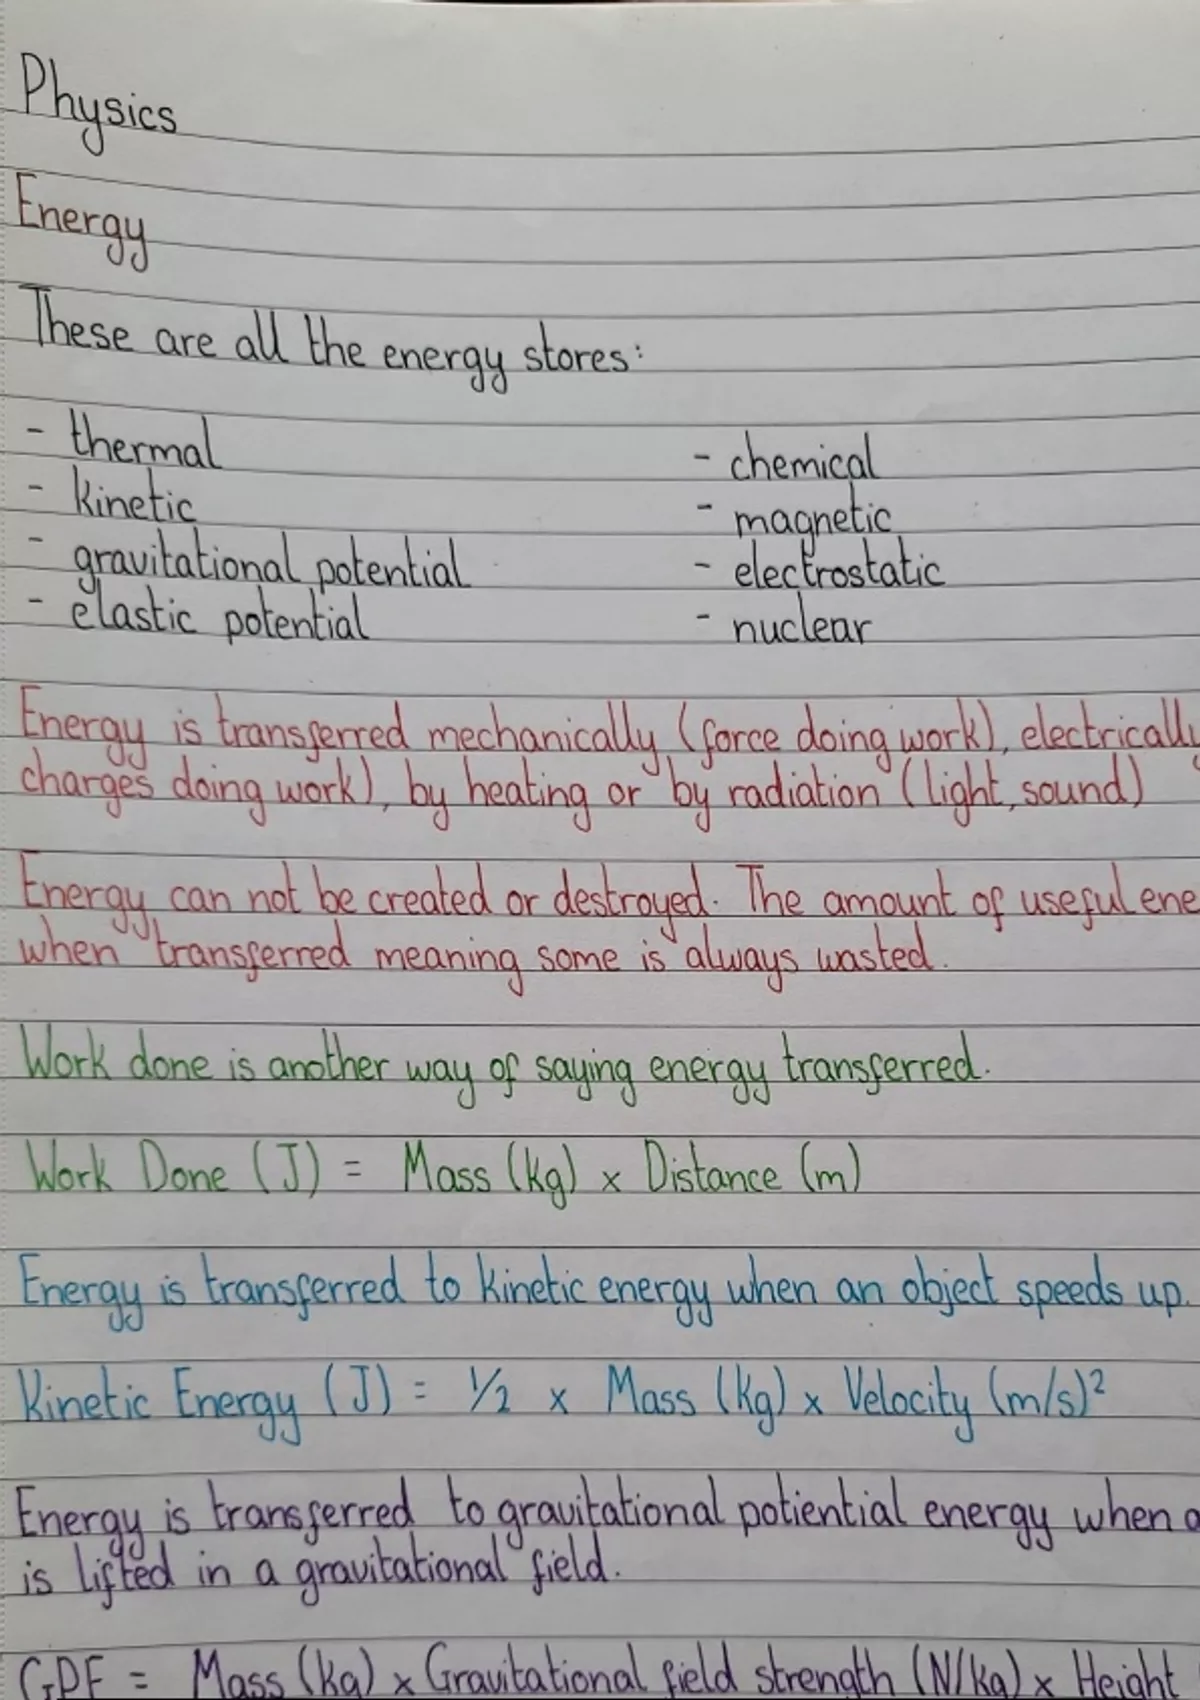 Physics
Energy
These are all the energy stores:
- thermal - chemical
- kinetic - magnetic
- gravitational potential - electrostatic
- elastic potential - nuclear
Energy is transferred mechanically (force doing work), electrically
charges doing work), by heating or by radiation (light, sound)
Energy can not be created or destroyed. The amount of useful ene
when transferred meaning some is always wasted.
Work done is another way of saying energy transferred.
Work Done (J) = Mass (kg) x Distance (m)
Energy is transferred to kinetic energy when an object speeds up.
Kinetic Energy (J) = 1/2 x Mass (kg) x Velocity (m/s)²
Energy is transferred to gravitational potiential energy when a
is lifted in a gravitational field.
GPE = Mass (kg) x Gravitational field strength (N/kg) x Height